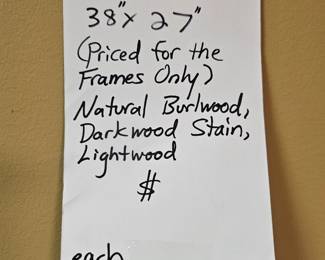 38"x 27"
(Priced for the
Frames Only)
Natural Burlwood,
Darkwood Stain,
Lightwood
$
each